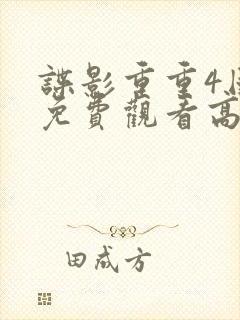 諜影重重4
免費觀看高
田成方